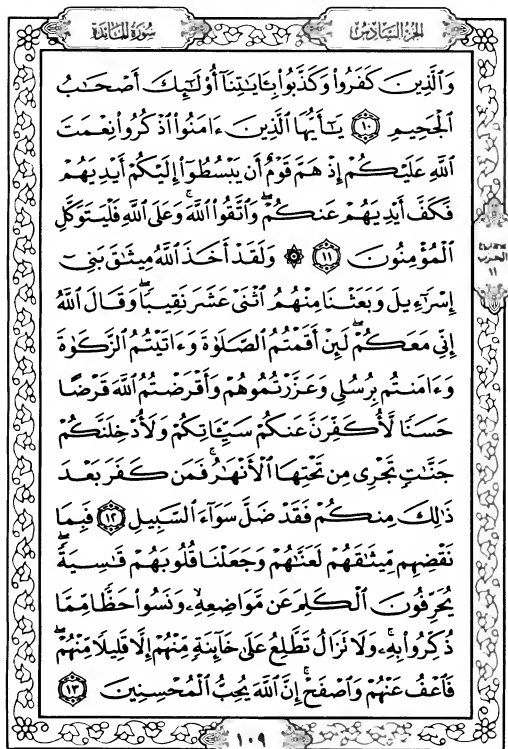 سُورَةُ المَائِدَة
الجُزْءُ السَّادِسُ
وَٱلَّذِينَ كَفَرُواْ وَكَذَّبُواْ بِـَٔايَٰتِنَآ أُوْلَٰٓئِكَ أَصْحَٰبُ
ٱلْجَحِيمِ ١٠ يَٰٓأَيُّهَا ٱلَّذِينَ ءَامَنُواْ ٱذْكُرُواْ نِعْمَتَ
ٱللَّهِ عَلَيْكُمْ إِذْ هَمَّ قَوْمٌ أَن يَبْسُطُوٓاْ إِلَيْكُمْ أَيْدِيَهُمْ
فَكَفَّ أَيْدِيَهُمْ عَنكُمْۖ وَٱتَّقُواْ ٱللَّهَۚ وَعَلَى ٱللَّهِ فَلْيَتَوَكَّلِ
ٱلْمُؤْمِنُونَ ١١ ۞ وَلَقَدْ أَخَذَ ٱللَّهُ مِيثَٰقَ بَنِىٓ
إِسْرَٰٓءِيلَ وَبَعَثْنَا مِنْهُمُ ٱثْنَىْ عَشَرَ نَقِيبًاۖ وَقَالَ ٱللَّهُ
إِنِّى مَعَكُمْۖ لَئِنْ أَقَمْتُمُ ٱلصَّلَوٰةَ وَءَاتَيْتُمُ ٱلزَّكَوٰةَ
وَءَامَنتُم بِرُسُلِى وَعَزَّرْتُمُوهُمْ وَأَقْرَضْتُمُ ٱللَّهَ قَرْضًا
حَسَنًا لَّأُكَفِّرَنَّ عَنكُمْ سَيِّـَٔاتِكُمْ وَلَأُدْخِلَنَّكُمْ
جَنَّٰتٍ تَجْرِى مِن تَحْتِهَا ٱلْأَنْهَٰرُۚ فَمَن كَفَرَ بَعْدَ
ذَٰلِكَ مِنكُمْ فَقَدْ ضَلَّ سَوَآءَ ٱلسَّبِيلِ ١٢ فَبِمَا
نَقْضِهِم مِّيثَٰقَهُمْ لَعَنَّٰهُمْ وَجَعَلْنَا قُلُوبَهُمْ قَٰسِيَةًۖ
يُحَرِّفُونَ ٱلْكَلِمَ عَن مَّوَاضِعِهِۦۙ وَنَسُواْ حَظًّا مِّمَّا
ذُكِّرُواْ بِهِۦۚ وَلَا تَزَالُ تَطَّلِعُ عَلَىٰ خَآئِنَةٍ مِّنْهُمْ إِلَّا قَلِيلًا مِّنْهُمْۖ
فَٱعْفُ عَنْهُمْ وَٱصْفَحْۚ إِنَّ ٱللَّهَ يُحِبُّ ٱلْمُحْسِنِينَ ١٣
الحزب
١١
١٠٩